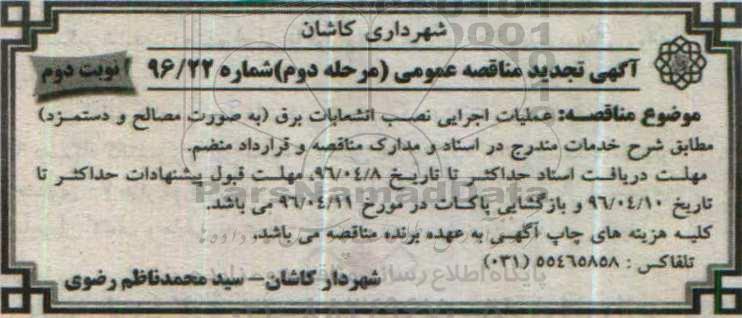 شهرداری کاشان
آگهی تجدید مناقصه عمومی (مرحله دوم)شماره ۹۶/۲۲
نوبت دوم
موضوع مناقصه: عملیات اجرایی نصب انشعابات برق (به صورت مصالح و دستمزد)
مطابق شرح خدمات مندرج در اسناد و مدارک مناقصه و قرارداد منضم.
مهلت دریافت اسناد حداکثر تا تاریخ ۹۶/۰۴/۸، مهلت قبول پیشنهادات حداکثر تا
تاریخ ۹۶/۰۴/۱۰ و بازگشایی پاکات در مورخ ۹۶/۰۴/۱۱ می باشد.
کلیه هزینه های چاپ آگهی به عهده برنده مناقصه می باشد.
تلفاکس : ۵۵۴۶۵۸۵۸ (۰۳۱)
شهردار کاشان– سید محمدناظم رضوی
ParsNamadData